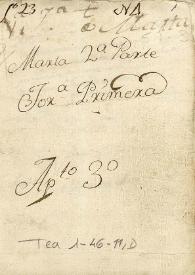 Lº 23 N A
Maria 2ª Parte
Jorª Primera
Apto 3º
Tea 1-46-11, D